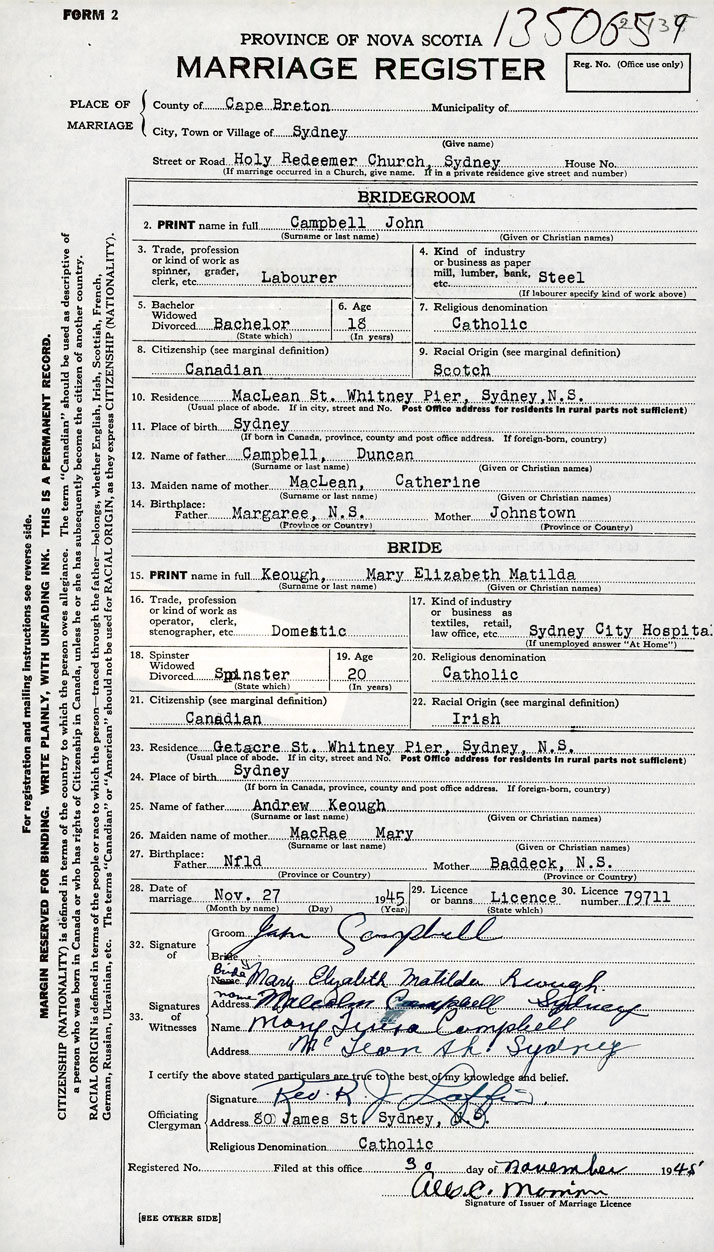 FORM 2
PROVINCE OF NOVA SCOTIA
MARRIAGE REGISTER
Reg. No. (Office use only)
PLACE OF MARRIAGE
County of Cape Breton Municipality of
City, Town or Village of Sydney
(Give name)
Street or Road Holy Redeemer Church, Sydney House No.
(If marriage occurred in a Church, give name. If in a private residence give street and number)
BRIDEGROOM
2. PRINT name in full Campbell John
(Surname or last name) (Given or Christian names)
3. Trade, profession
or kind of work as
spinner, grader,
clerk, etc. Labourer
4. Kind of industry
or business as paper
mill, lumber, bank,
etc. Steel
(If labourer specify kind of work above)
5. Bachelor
Widowed
Divorced Bachelor
(State which)
6. Age
18
(In years)
7. Religious denomination
Catholic
8. Citizenship (see marginal definition)
Canadian
9. Racial Origin (see marginal definition)
Scotch
10. Residence MacLean St. Whitney Pier, Sydney,N.S.
(Usual place of abode. If in city, street and No. Post Office address for residents in rural parts not sufficient)
11. Place of birth Sydney
(If born in Canada, province, county and post office address. If foreign-born, country)
12. Name of father Campbell, Duncan
(Surname or last name) (Given or Christian names)
13. Maiden name of mother MacLean, Catherine
(Surname or last name) (Given or Christian names)
14. Birthplace:
Father Margaree, N.S. Mother Johnstown
(Province or Country) (Province or Country)
BRIDE
15. PRINT name in full Keough, Mary Elizabeth Matilda
(Surname or last name) (Given or Christian names)
16. Trade, profession
or kind of work as
operator, clerk,
stenographer, etc. Domestic
17. Kind of industry
or business as
textiles, retail,
law office, etc. Sydney City Hospital
(If unemployed answer "At Home")
18. Spinster
Widowed
Divorced Spinster
(State which)
19. Age
20
(In years)
20. Religious denomination
Catholic
21. Citizenship (see marginal definition)
Canadian
22. Racial Origin (see marginal definition)
Irish
23. Residence Getacre St. Whitney Pier, Sydney, N.S.
(Usual place of abode. If in city, street and No. Post Office address for residents in rural parts not sufficient)
24. Place of birth Sydney
(If born in Canada, province, county and post office address. If foreign-born, country)
25. Name of father Andrew Keough
(Surname or last name) (Given or Christian names)
26. Maiden name of mother MacRae Mary
(Surname or last name) (Given or Christian names)
27. Birthplace:
Father Nfld Mother Baddeck, N.S.
(Province or Country) (Province or Country)
28. Date of
marriage Nov. 27 1945
(Month by name) (Day) (Year)
29. Licence
or banns Licence
(State which)
30. Licence
number 79711
32. Signature of
Groom John Campbell
Bride
Bride Name Mary Elizabeth Matilda Keough.
33. Signatures of Witnesses
name Address Malcolm Campbell Sydney
Name Mary Teresa Campbell
Address McLean St. Sydney
I certify the above stated particulars are true to the best of my knowledge and belief.
Officiating Clergyman
Signature Rev. R J Laffin.
Address 80 James St. Sydney, N.S.
Religious Denomination Catholic
Registered No. Filed at this office 30 day of November 1945
Signature of Issuer of Marriage Licence
[SEE OTHER SIDE]
For registration and mailing instructions see reverse side.
MARGIN RESERVED FOR BINDING. WRITE PLAINLY, WITH UNFADING INK. THIS IS A PERMANENT RECORD.
CITIZENSHIP (NATIONALITY) is defined in terms of the country to which the person owes allegiance. The term "Canadian" should be used as descriptive of
a person who was born in Canada or who has rights of Citizenship in Canada, unless he or she has subsequently become the citizen of another country.
RACIAL ORIGIN is defined in terms of the people or race to which the person—traced through the father—belongs, whether English, Irish, Scottish, French,
German, Russian, Ukrainian, etc. The terms "Canadian" or "American" should not be used for RACIAL ORIGIN, as they express CITIZENSHIP (NATIONALITY).